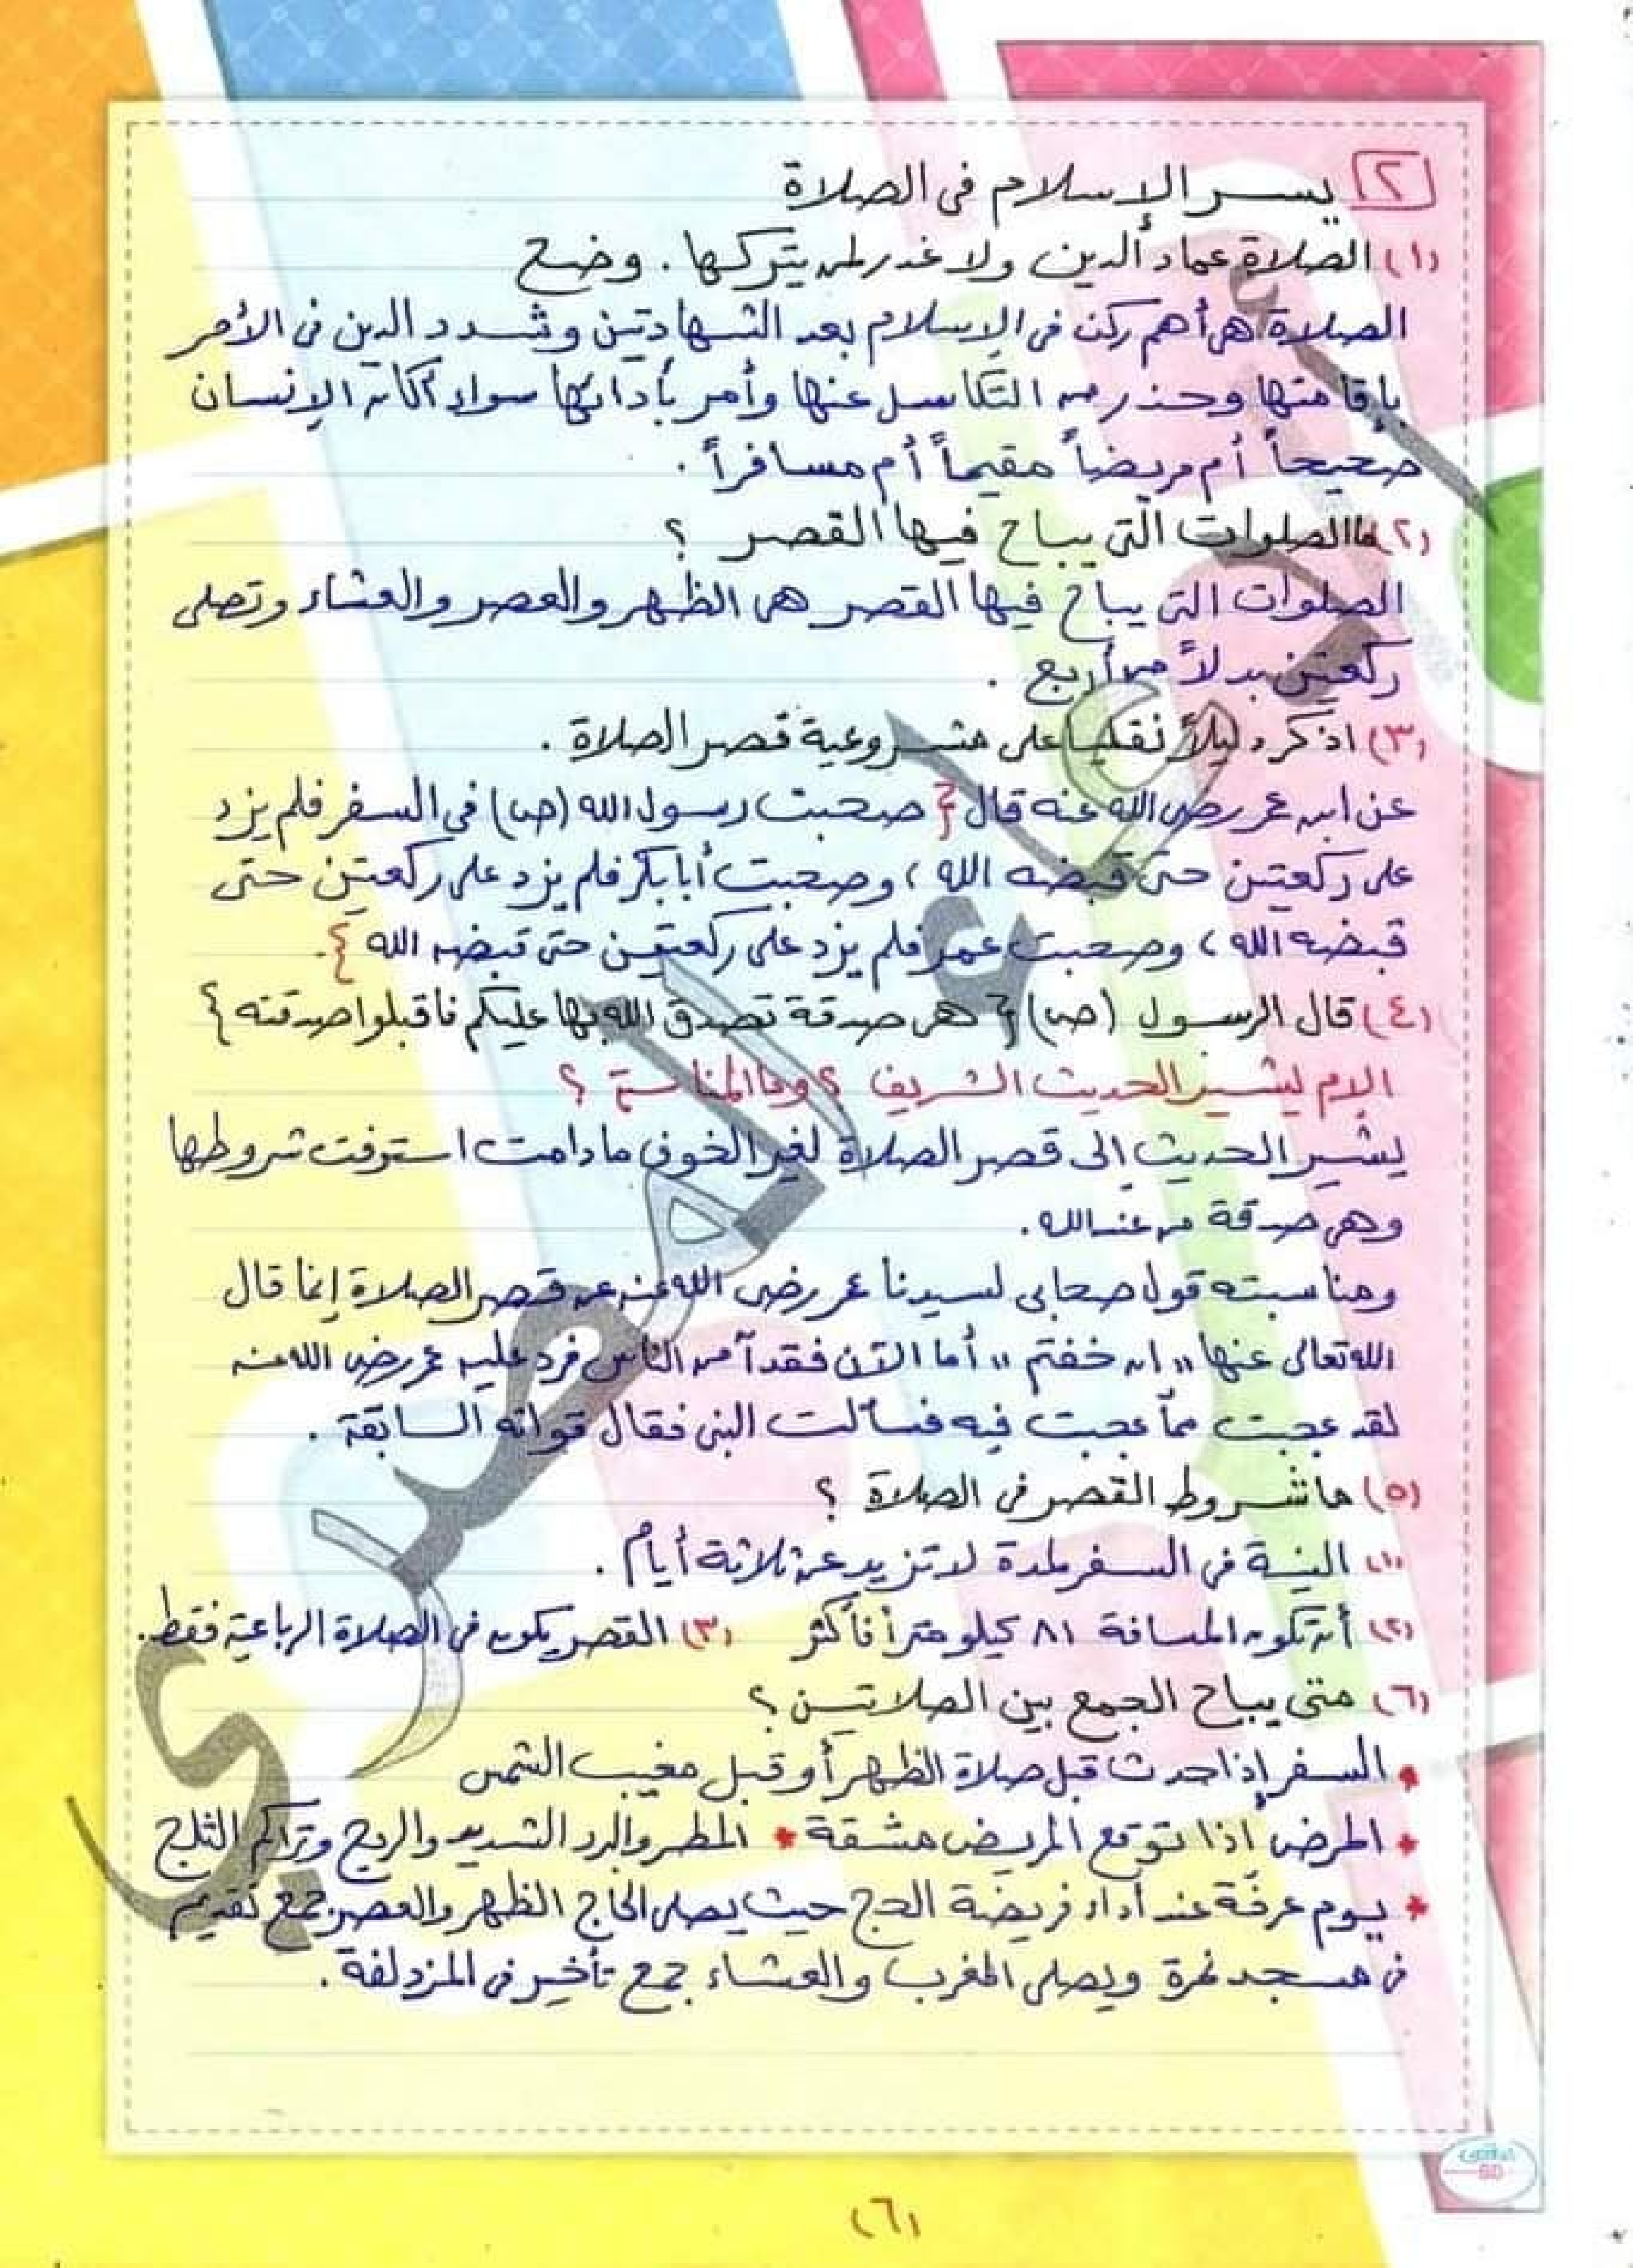 ٢ يسر الإسلام فى الصلاة
(١) الصلاة عماد الدين ولا عذر لمن يتركها . وضح
الصلاة هى أهم ركن فى الإسلام بعد الشهادتين وشدد الدين فى الأمر
بإقامتها وحذر من التكاسل عنها وأمر بأدائها سواء أكان الإنسان
صحيحاً أم مريضاً مقيماً أم مسافراً .
(٢) ما الصلوات التى يباح فيها القصر ؟
الصلوات التى يباح فيها القصر هى الظهر والعصر والعشاء وتصلى
ركعتين بدلاً من أربع .
(٣) اذكر دليلاً نقلياً على مشروعية قصر الصلاة .
عن ابن عمر رضى الله عنه قال { صحبت رسول الله (ص) فى السفر فلم يزد
على ركعتين حتى قبضه الله ، وصحبت أبا بكر فلم يزد على ركعتين حتى
قبضه الله ، وصحبت عمر فلم يزد على ركعتين حتى قبضه الله } .
(٤) قال الرسول (ص) { هى صدقة تصدق الله بها عليكم فاقبلوا صدقته }
الام يشير الحديث الشريف ؟ وما المناسبة ؟
يشير الحديث إلى قصر الصلاة لغير الخوف ما دامت استوفت شروطها
وهى صدقة من عند الله .
ومناسبته قول صحابى لسيدنا عمر رضى الله عنه عن قصر الصلاة إنما قال
الله تعالى عنها " ان خفتم " أما الآن فقد آمن الناس فرد عليه عمر رضى الله عنه
لقد عجبت مما عجبت فيه فسألت النبى فقال قولته السابقة .
(٥) ما شروط القصر فى الصلاة ؟
(١) النية فى السفر لمدة لا تزيد عن ثلاثة أيام .
(٢) أن تكون المسافة ٨١ كيلو متراً فأكثر (٣) القصر يكون فى الصلاة الرباعية فقط .
(٦) متى يباح الجمع بين الصلاتين ؟
• السفر إذا حدث قبل صلاة الظهر أو قبل مغيب الشمس
* المرض اذا توقع المريض مشقة * المطر والبرد الشديد والريح وتراكم الثلج
* يوم عرفة عند أداء فريضة الحج حيث يصلى الحاج الظهر والعصر جمع تقديم
فى مسجد نمرة ويصلى المغرب والعشاء جمع تأخير فى المزدلفة .
المصرى
(٦)